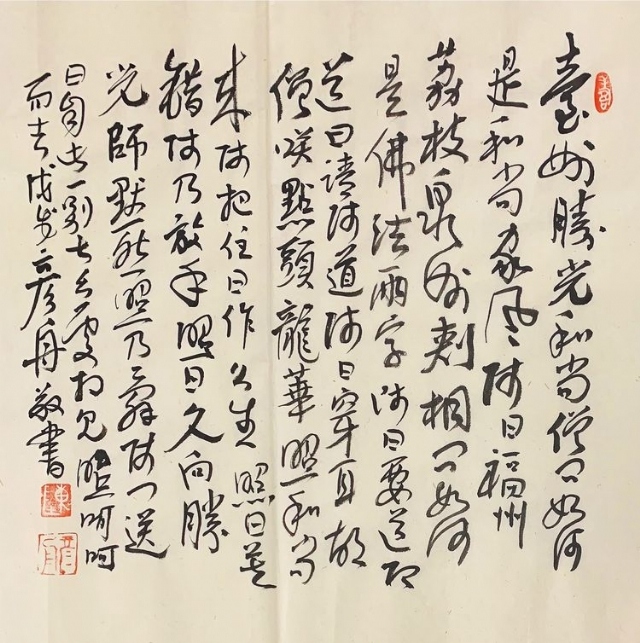 臺州勝光和尚僧問如何
是和尚家風師曰福州
荔枝泉州刺桐問如何
是佛法兩字師曰要道即
道曰請師道師曰穿耳胡
僧咲點頭龍華照和尚
來師把住曰作么生照曰莫
錯師乃放手照曰久向勝
光師默然照乃辭師門送
曰自此一別甚么處相見照呵呵
而去 彥舟敬書